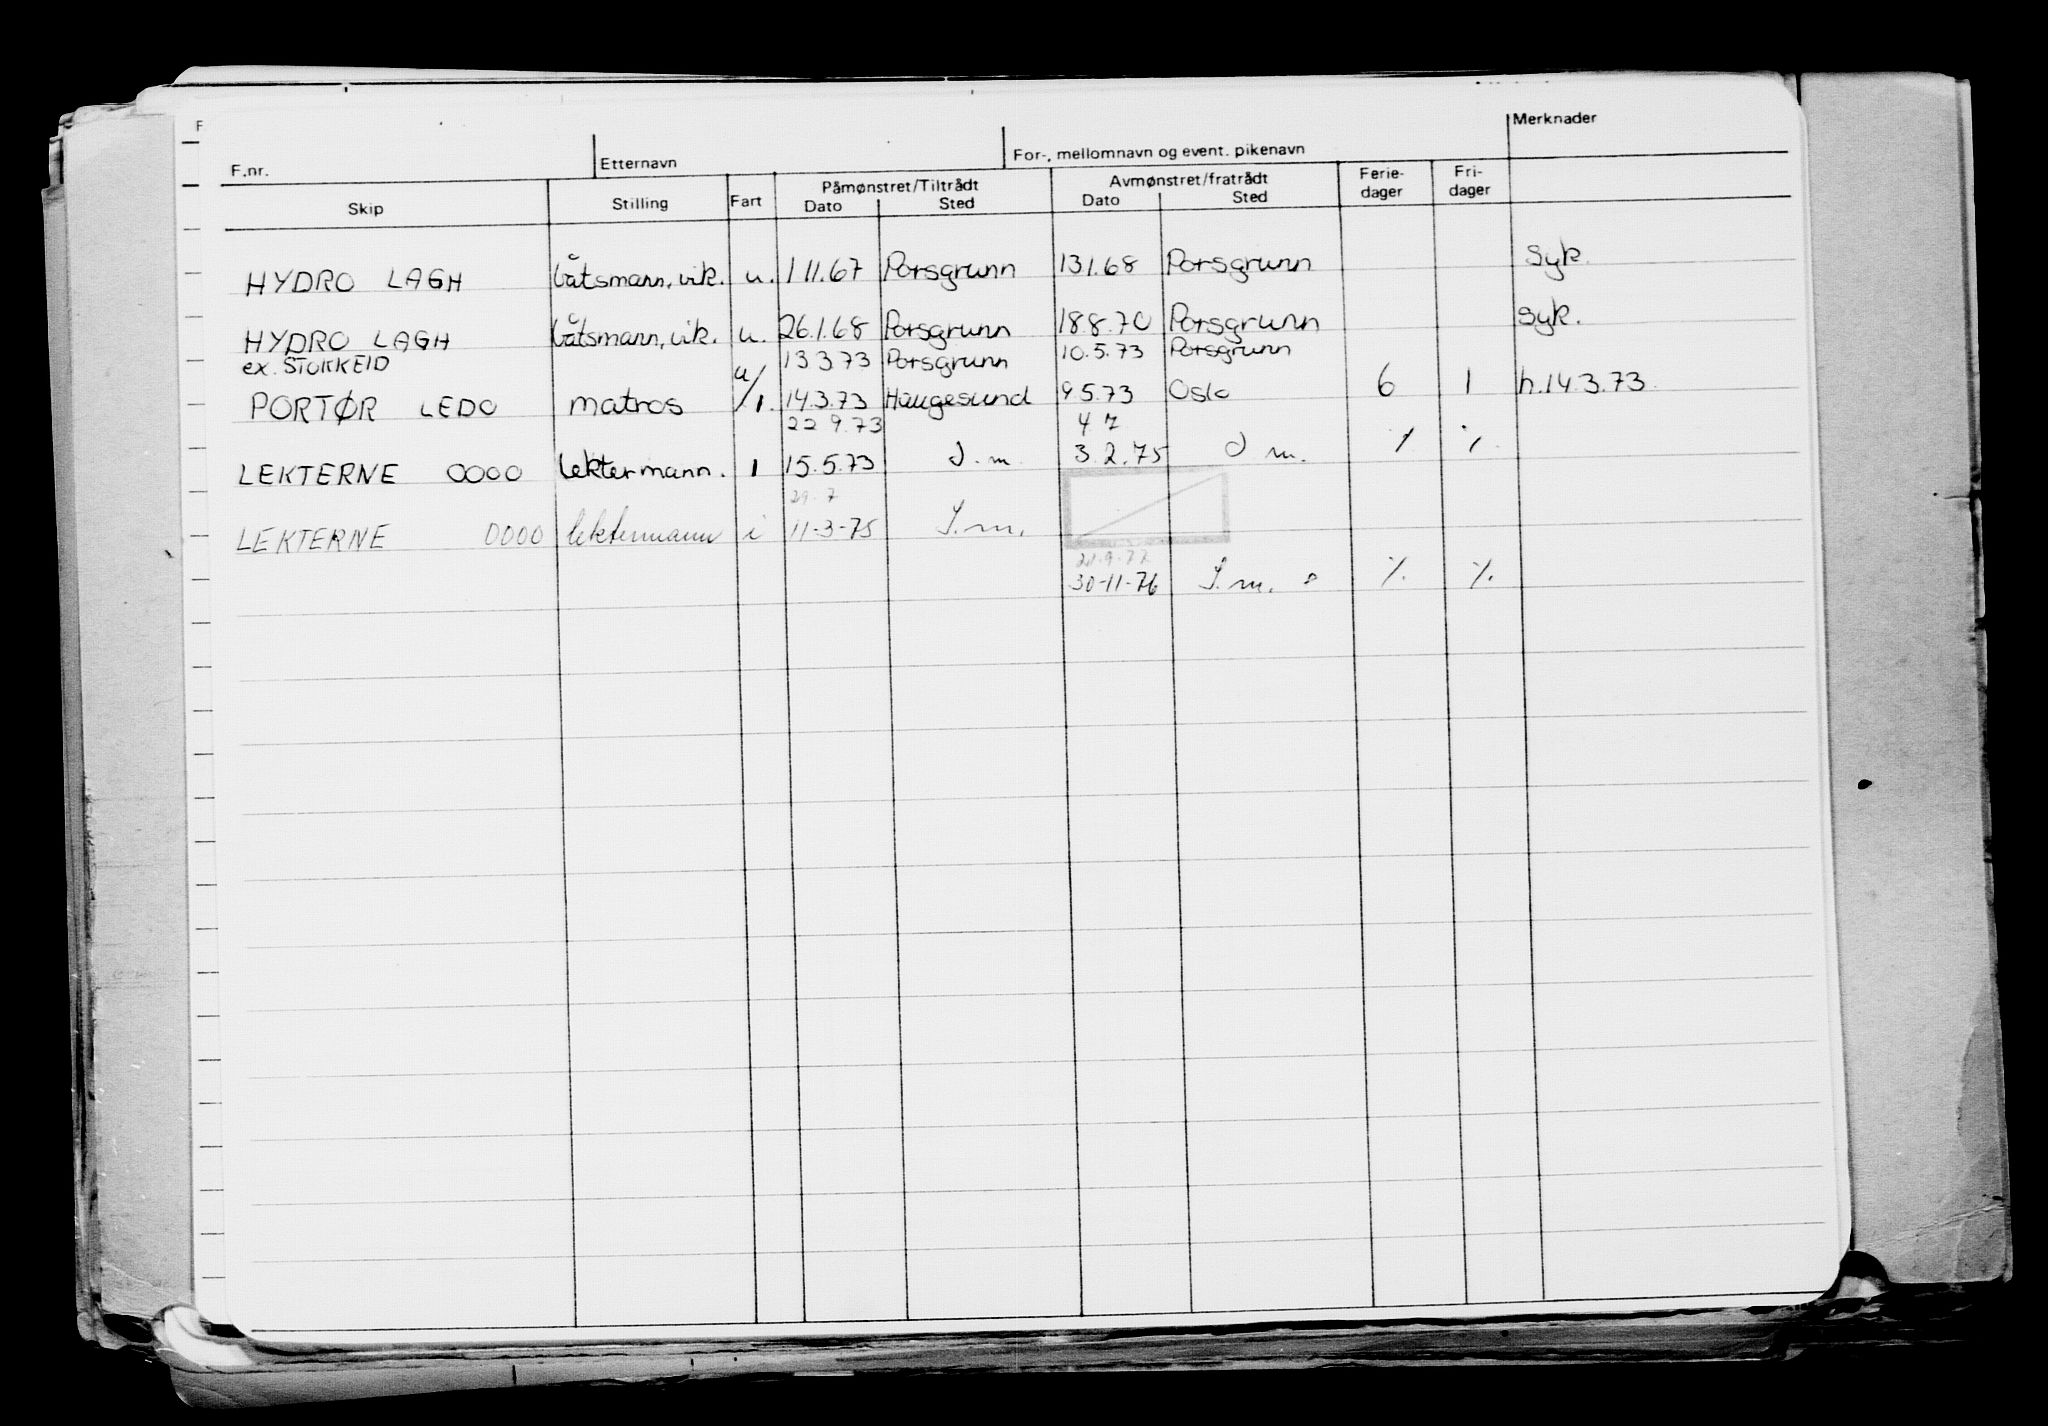 F.nr. Etternavn For-, mellomnavn og event. pikenavn Merknader
Skip Stilling Fart Påmønstret/Tiltrådt Dato Sted Avmønstret/fratrådt Dato Sted Ferie-dager Fri-dager
HYDRO LAGH båtsmann, vik. u. 1 11.67 Porsgrunn 13 1.68 Porsgrunn Syk.
HYDRO LAGH båtsmann, vik. u. 26.1.68 Porsgrunn 18.8.70 Porsgrunn Syk.
ex. STOKKEID 13 3 73 Porsgrunn 10.5.73 Porsgrunn
PORTØR LEDO matros u/1. 14.3.73 Haugesund 9.5.73 Oslo 6 1 h.14.3.73
22 9.73 4 7
LEKTERNE 0000 lektermann. 1 15.5.73 J. m. 3.2.75 J m. % %
29.7
LEKTERNE 0000 lektermann i 11-3-75 I.m.
30-11-76 I.m. % %